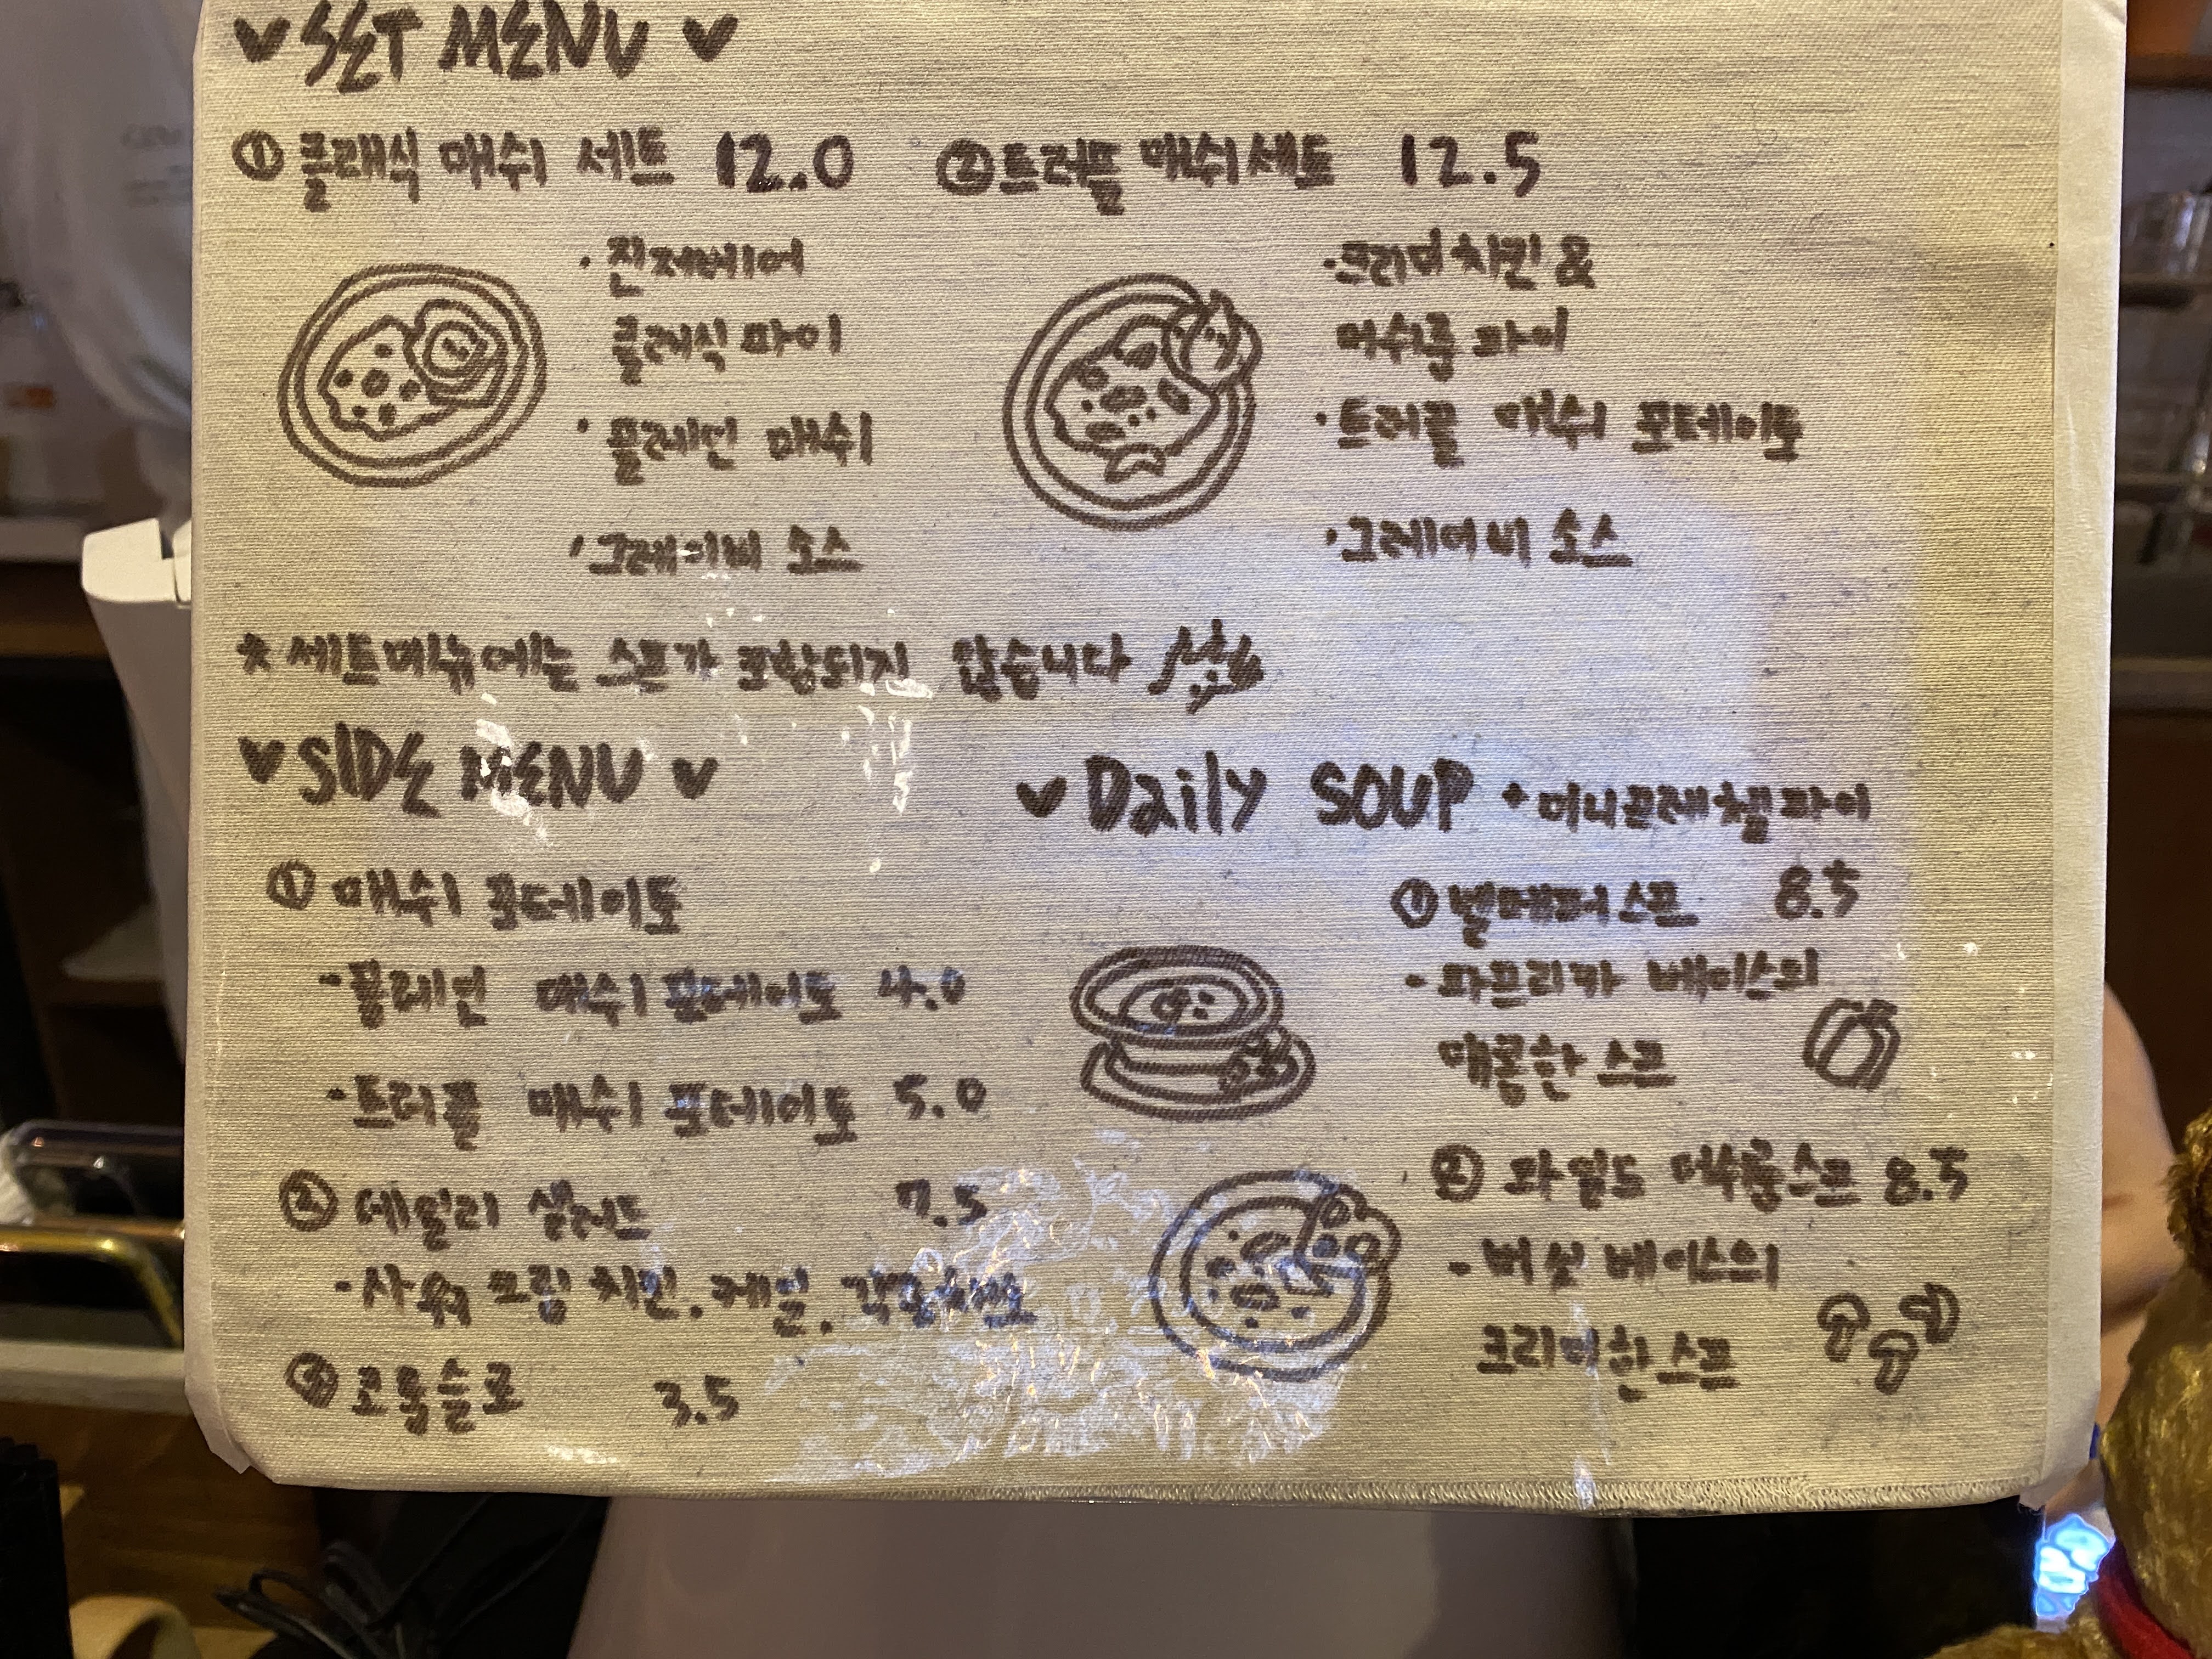 ♥ SET MENU ♥
①클래식 매쉬 세트 12.0
· 진저베어
클래식 파이
· 플레인 매쉬
· 그레이비 소스
② 트러플 매쉬세트 12.5
· 크리미치킨 &
머쉬룸 파이
· 트러플 매쉬 포테이토
· 그레이비 소스
* 세트메뉴에는 스프가 포함되지 않습니다
♥ SIDE MENU ♥
① 매쉬 포테이토
- 플레인 매쉬 포테이토 4.0
- 트러플 매쉬 포테이토 5.0
② 데일리 샐러드 7.5
- 사워 크림 치킨, 케일,
③ 코울슬로 3.5
♥ Daily SOUP + 미니프레첼파이
① 벨페퍼스프 8.5
- 파프리카 베이스의
매콤한 스프
② 와일드 머쉬룸스프 8.5
- 버섯 베이스의
크리미한 스프